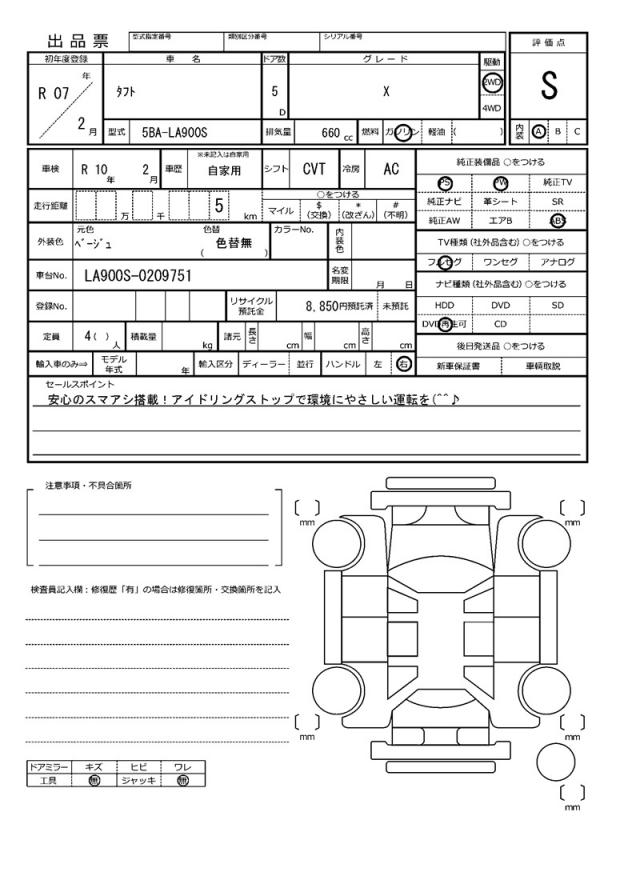 出品票
型式指定番号 類別区分番号 シリアル番号
初年度登録 車名 ドア数 グレード 駆動 評価点
R 07 年 ﾀﾌﾄ 5 D X 2WD S
2 月 4WD
型式 5BA-LA900S 排気量 660 cc 燃料 ガソリン 軽油 ( ) 内装 A B C
車検 R 10 年 2 月 車歴 ※未記入は自家用 自家用 シフト CVT 冷房 AC
走行距離 万 千 5 km
○をつける
マイル $(交換) *(改ざん) #(不明)
外装色 元色 ﾍﾞｰｼﾞｭ 色替 色替無 ( ) カラーNo. 内装色
車台No. LA900S-0209751 名変期限 月 日
登録No. リサイクル預託金 8,850円預託済 未預託
定員 4( )人 積載量 kg 諸元 長さ cm 幅 cm 高さ cm
輸入車のみ⇒ モデル年式 年 輸入区分 ディーラー 並行 ハンドル 左 右
純正装備品 ○をつける
PS PW 純正TV
純正ナビ 革シート SR
純正AW エアB ABS
TV種類(社外品含む)○をつける
フルセグ ワンセグ アナログ
ナビ種類(社外品含む)○をつける
HDD DVD SD
DVD再生可 CD
後日発送品 ○をつける
新車保証書 車輌取説
セールスポイント
安心のスマアシ搭載！アイドリングストップで環境にやさしい運転を(^^♪
注意事項・不具合箇所
検査員記入欄：修復歴「有」の場合は修復箇所・交換箇所を記入
〔 〕 〔 〕
mm mm
〔 〕 〔 〕
mm mm
〔 〕
mm
ドアミラー キズ ヒビ ワレ
工具 無 ジャッキ 無